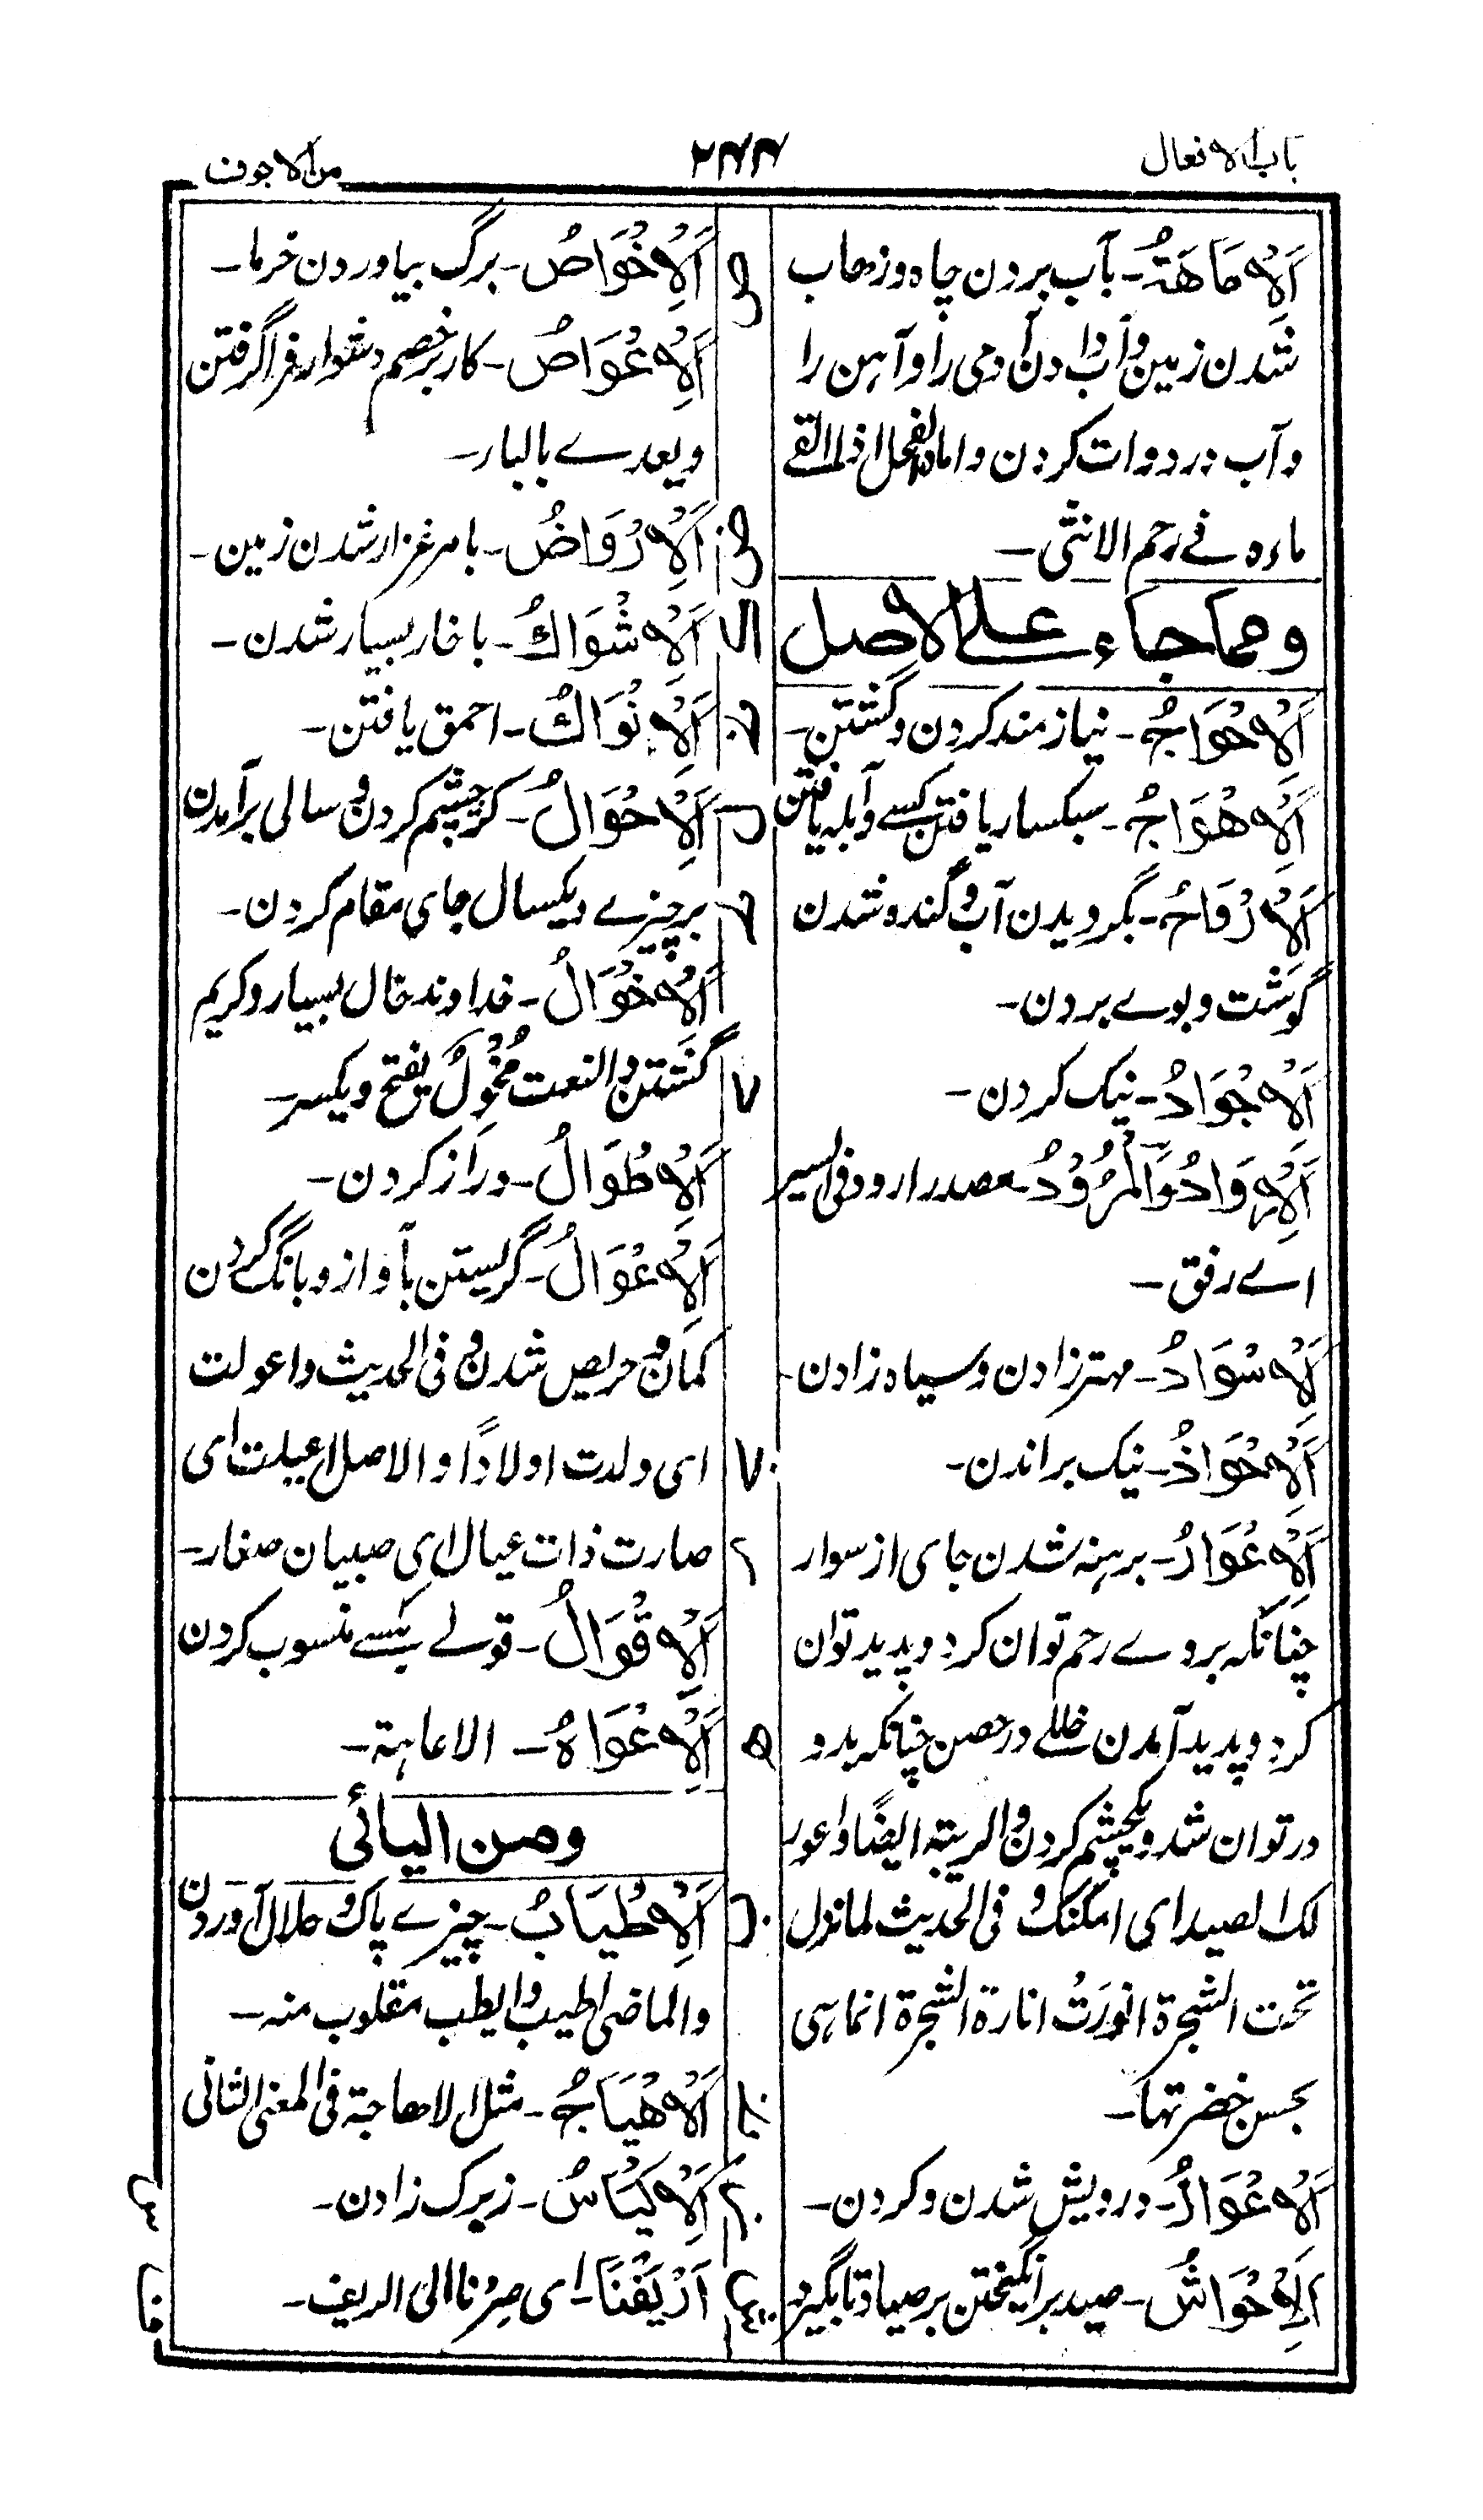 باب الافعال
۲۶۶
من الاجوف
اَلْاِمَاهَةُ۔ بآب بردن چاه و زهاب
شدن زمین و آب دادن آدمی را و آہن را
و آب در دوات کردن و اماہ الفحل اذا القے
ماءه فے رحم الانثی۔
ومما جاء علے الاصل
اَلْاِحْوَاجُ۔ نیازمند کردن و گشتن۔
اَلْاِهْوَاجُ۔ سبکسار یافتن کسے و آبلہ یافتن
اَلْاِرْوَاحُ۔ بگردیدن آب و گنده شدن
گوشت و بوے بردن۔
اَلْاِجْوَادُ۔ نیک کردن۔
اَلْاِرْوَادُ وَالْمُرْوَدُ۔ مصدر ارود فی السیر
اے رفق۔
اَلْاِسْوَادُ۔ مہتر زادن و سیاه زادن۔
اَلْاِحْوَاذُ۔ نیک براندن۔
اَلْاِعْوَارُ۔ برہنہ شدن جای از سوار
چنانکہ بروے رحم توان کرد و پدید توان
کرد و پدید آمدن خللے در حصن چنانکہ بدو
در توان شد و یکچشم کردن و الریبة ایضًا و اعور
لک الصید ای امکنک و فی الحدیث لما نزل
تحت الشجرة انورت انارة الشجرة انما ہی
بحسن خضرتہا۔
اَلْاِعْوَازُ۔ درویش شدن و کردن۔
اَلْاِحْوَاشُ۔ صید برانگیختن بر صیاد تا بگیرد
ص
اَلْاِخْوَاصُ۔ برگ بیاوردن خرما۔
اَلْاِعْوَاصُ۔ کار بر خصم دشوار فرا گرفتن
و یعدے بالباء۔
ض
اَلْاِرْوَاضُ۔ با مرغزار شدن زمین۔
اَلْاِشْوَاكُ۔ با خار بسیار شدن۔
اَلْاِنْوَاكُ۔ احمق یافتن۔
اَلْاِحْوَالُ۔ کژچشم کردن و سالی برآمدن
بر چیزے و یکسال جای مقام کردن۔
اَلْاِخْوَالُ۔ خداوند خال بسیار و کریم
گشتن و النعت مُخْوَلٌ بفتح و بکسر۔
اَلْاِطْوَالُ۔ دراز کردن۔
اَلْاِعْوَالُ۔ گریستن بآواز و بانگ کردن
کمان و حریص شدن و فی الحدیث و اعولت
ای ولدت اولادًا و الاصل اعیلت ای
صارت ذات عیال ای صبیان صغار۔
اَلْاِقْوَالُ۔ قولے بکسے منسوب کردن
ه
اَلْاِعْوَاهُ۔ الاعاہة۔
ومن الیائی
اَلْاِطْیَابُ۔ چیزے پاک و حلال آوردن
والماضی اطیب و ایطب مقلوب منہ۔
اَلْاِهْیَاجُ۔ مثل الاهاجة فی المعنی الثانی
اَلْاِكْیَاسُ۔ زیرک زادن۔
اَرْیَفْنَا۔ ای صِرْنا الی الریف۔